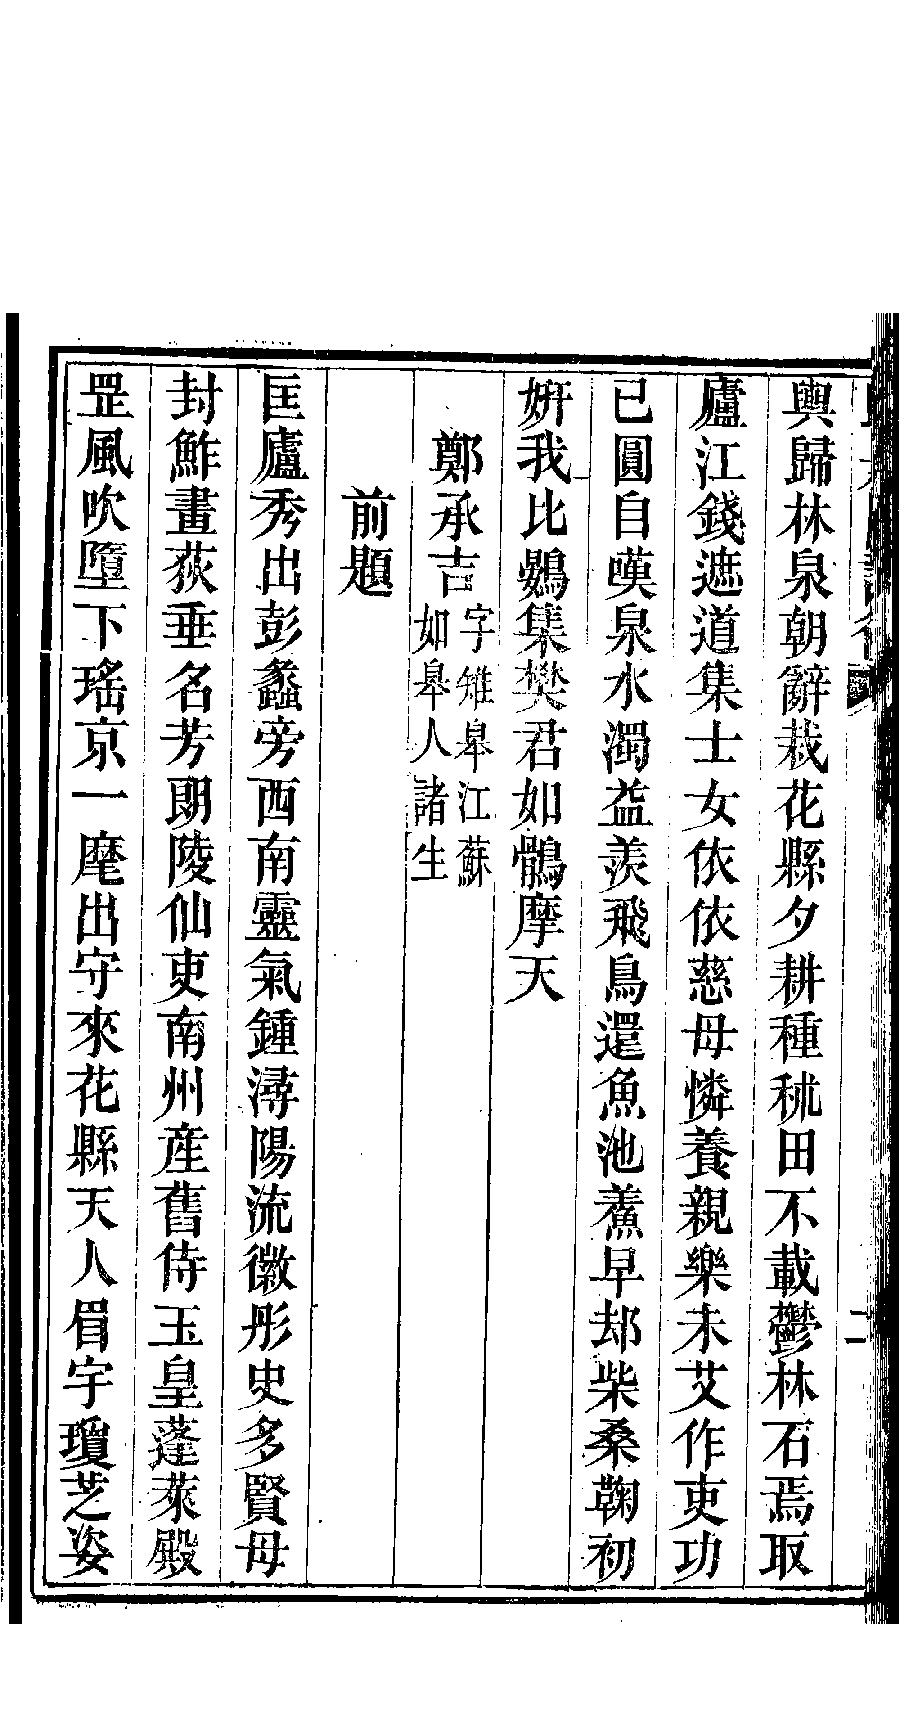 輿歸林泉朝辭栽花縣夕耕種秫田不載鬱林石焉取
廬江錢遮道集士女依依慈母憐養親樂未艾作吏功
已圓自嘆泉水濁益羨飛鳥還魚池鱶早却柴桑鞠初
妍我比鷃集樊君如鶻摩天
鄭承吉字雉皋江蘇
如皋人諸生
前題
匡廬秀出彭蠡旁西南靈氣鍾潯陽流徽彤史多賢母
封鮓畫荻垂名芳朗陵仙吏南州産舊侍玉皇蓬萊殿
罡風吹墮下瑤京一麾出守來花縣天人眉宇瓊芝姿